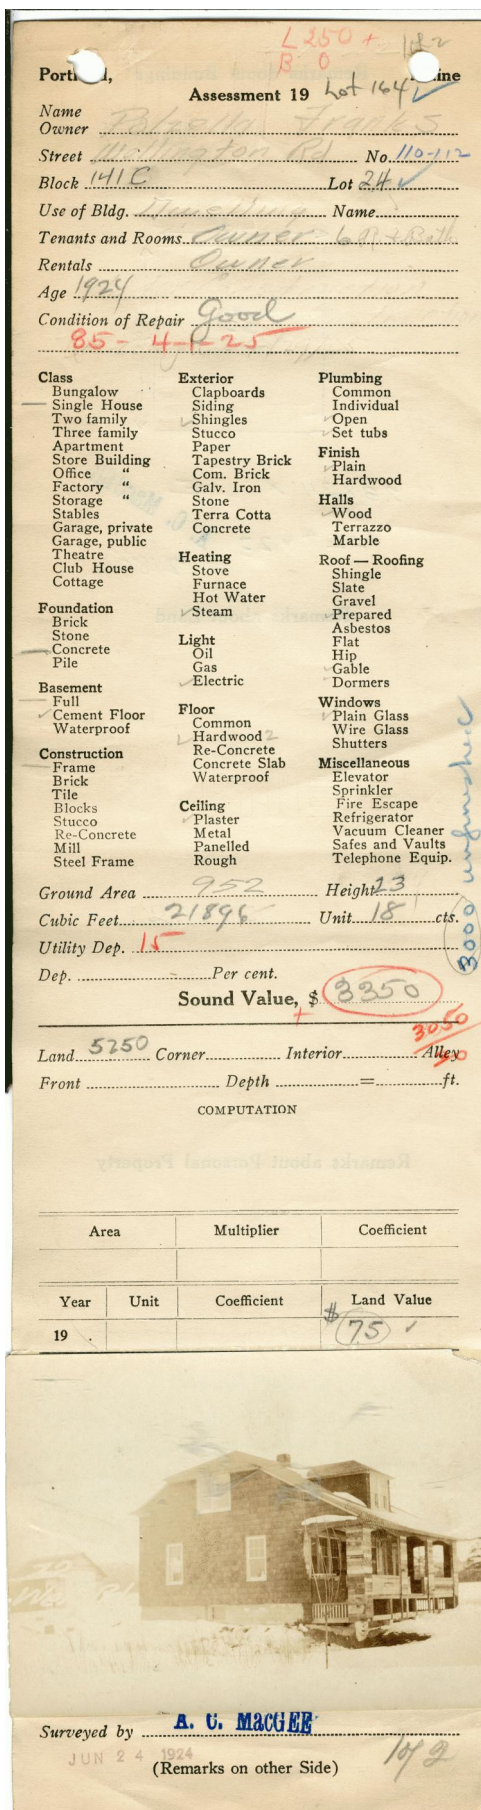 L 250 +
B 0
182
Portland, Maine
Assessment 19 Lot 164
Name
Owner Franks
Street Wellington Rd No. 110-112
Block 141 C Lot 24
Use of Bldg. Dwelling Name
Tenants and Rooms Owner 6 R + Bath
Rentals Owner
Age 1924
Condition of Repair Good
85 - 4-1-25
Class
Bungalow
Single House
Two family
Three family
Apartment
Store Building
Office "
Factory "
Storage "
Stables
Garage, private
Garage, public
Theatre
Club House
Cottage
Foundation
Brick
Stone
Concrete
Pile
Basement
Full
Cement Floor
Waterproof
Construction
Frame
Brick
Tile
Blocks
Stucco
Re-Concrete
Mill
Steel Frame
Exterior
Clapboards
Siding
Shingles
Stucco
Paper
Tapestry Brick
Com. Brick
Galv. Iron
Stone
Terra Cotta
Concrete
Heating
Stove
Furnace
Hot Water
Steam
Light
Oil
Gas
Electric
Floor
Common
Hardwood 2
Re-Concrete
Concrete Slab
Waterproof
Ceiling
Plaster
Metal
Panelled
Rough
Plumbing
Common
Individual
Open
Set tubs
Finish
Plain
Hardwood
Halls
Wood
Terrazzo
Marble
Roof — Roofing
Shingle
Slate
Gravel
Prepared
Asbestos
Flat
Hip
Gable
Dormers
Windows
Plain Glass
Wire Glass
Shutters
Miscellaneous
Elevator
Sprinkler
Fire Escape
Refrigerator
Vacuum Cleaner
Safes and Vaults
Telephone Equip.
3000 unfinished
Ground Area 952 Height 23
Cubic Feet 21896 Unit 18 cts.
Utility Dep. 15
Dep. - Per cent.
Sound Value, $ 3350
+
3050
50
Land 5250 Corner Interior Alley
Front Depth = ft.
COMPUTATION
Area Multiplier Coefficient
Year Unit Coefficient Land Value
19 $ 75
Surveyed by A. C. MacGEE
JUN 24 1924
(Remarks on other Side)
1 of 2